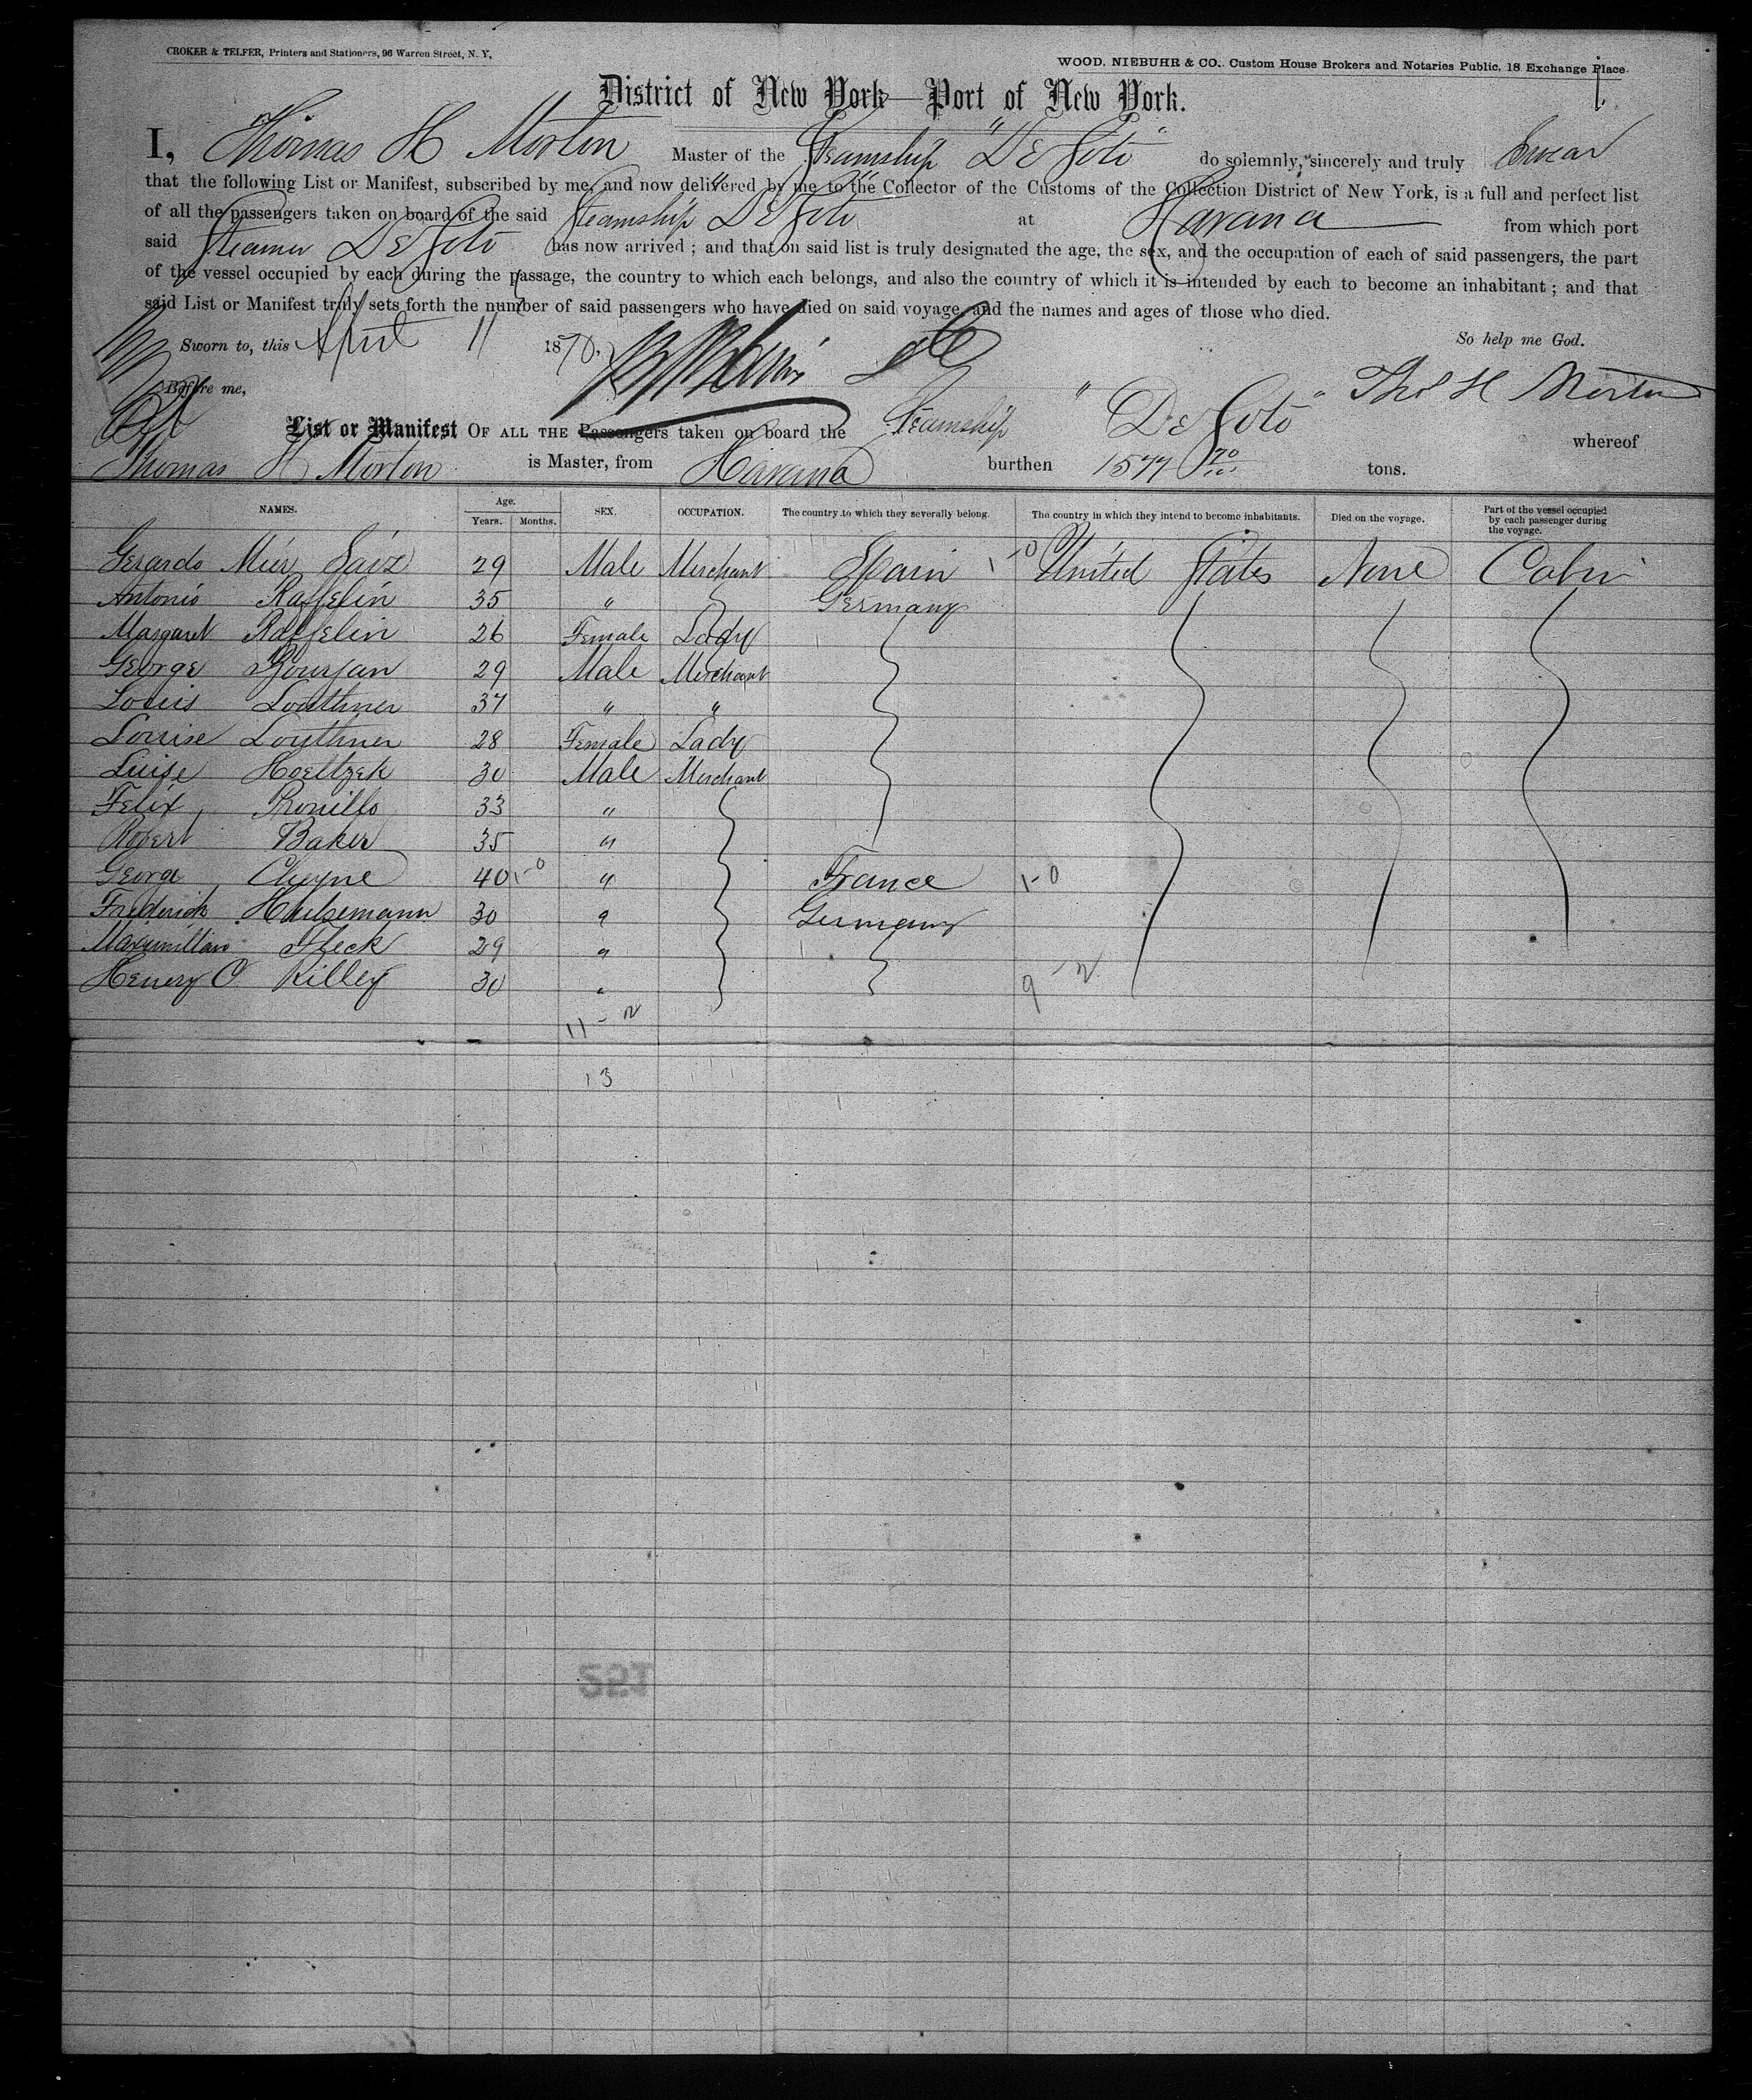 CROKER & TELFER, Printers and Stationers, 96 Warren Street, N. Y.
WOOD, NIEBUHR & CO., Custom House Brokers and Notaries Public, 18 Exchange Place.
District of New York—Port of New York.
I, Thomas H Morton Master of the Steamship "De Soto" do solemnly, sincerely and truly Swear
that the following List or Manifest, subscribed by me, and now delivered by me to the Collector of the Customs of the Collection District of New York, is a full and perfect list
of all the passengers taken on board of the said Steamship "De Soto" at Havana from which port
said Steamer De Soto has now arrived ; and that on said list is truly designated the age, the sex, and the occupation of each of said passengers, the part
of the vessel occupied by each during the passage, the country to which each belongs, and also the country of which it is intended by each to become an inhabitant ; and that
said List or Manifest truly sets forth the number of said passengers who have died on said voyage, and the names and ages of those who died.
Sworn to, this April 11 1870, So help me God.
Before me, Thos H Morton
List or Manifest OF ALL THE Passengers taken on board the Steamship "De Soto" whereof
Thomas H Morton is Master, from Havana burthen 1577 70/100 tons.
NAMES. Age. Years. Months. SEX. OCCUPATION. The country to which they severally belong. The country in which they intend to become inhabitants. Died on the voyage. Part of the vessel occupied by each passenger during the voyage.
Gerardo Saiz 29 Male Merchant Spain 1-0 United States None Cabin
Antonio Raffelin 35 " Germany
Margaret Raffelin 26 Female Lady
George 29 Male Merchant
Louis Louthner 37 " "
Louise Louthner 28 Female Lady
Luise Hoeltzek 30 Male Merchant
Felix 33 "
Robert Baker 35 "
George Cheyne 40 1-0 " France 1-0
Frederick Hulsemann 30 " Germany
Maximillian Fleck 29 "
Henery O Killey 30 " 9-2
11-2
13